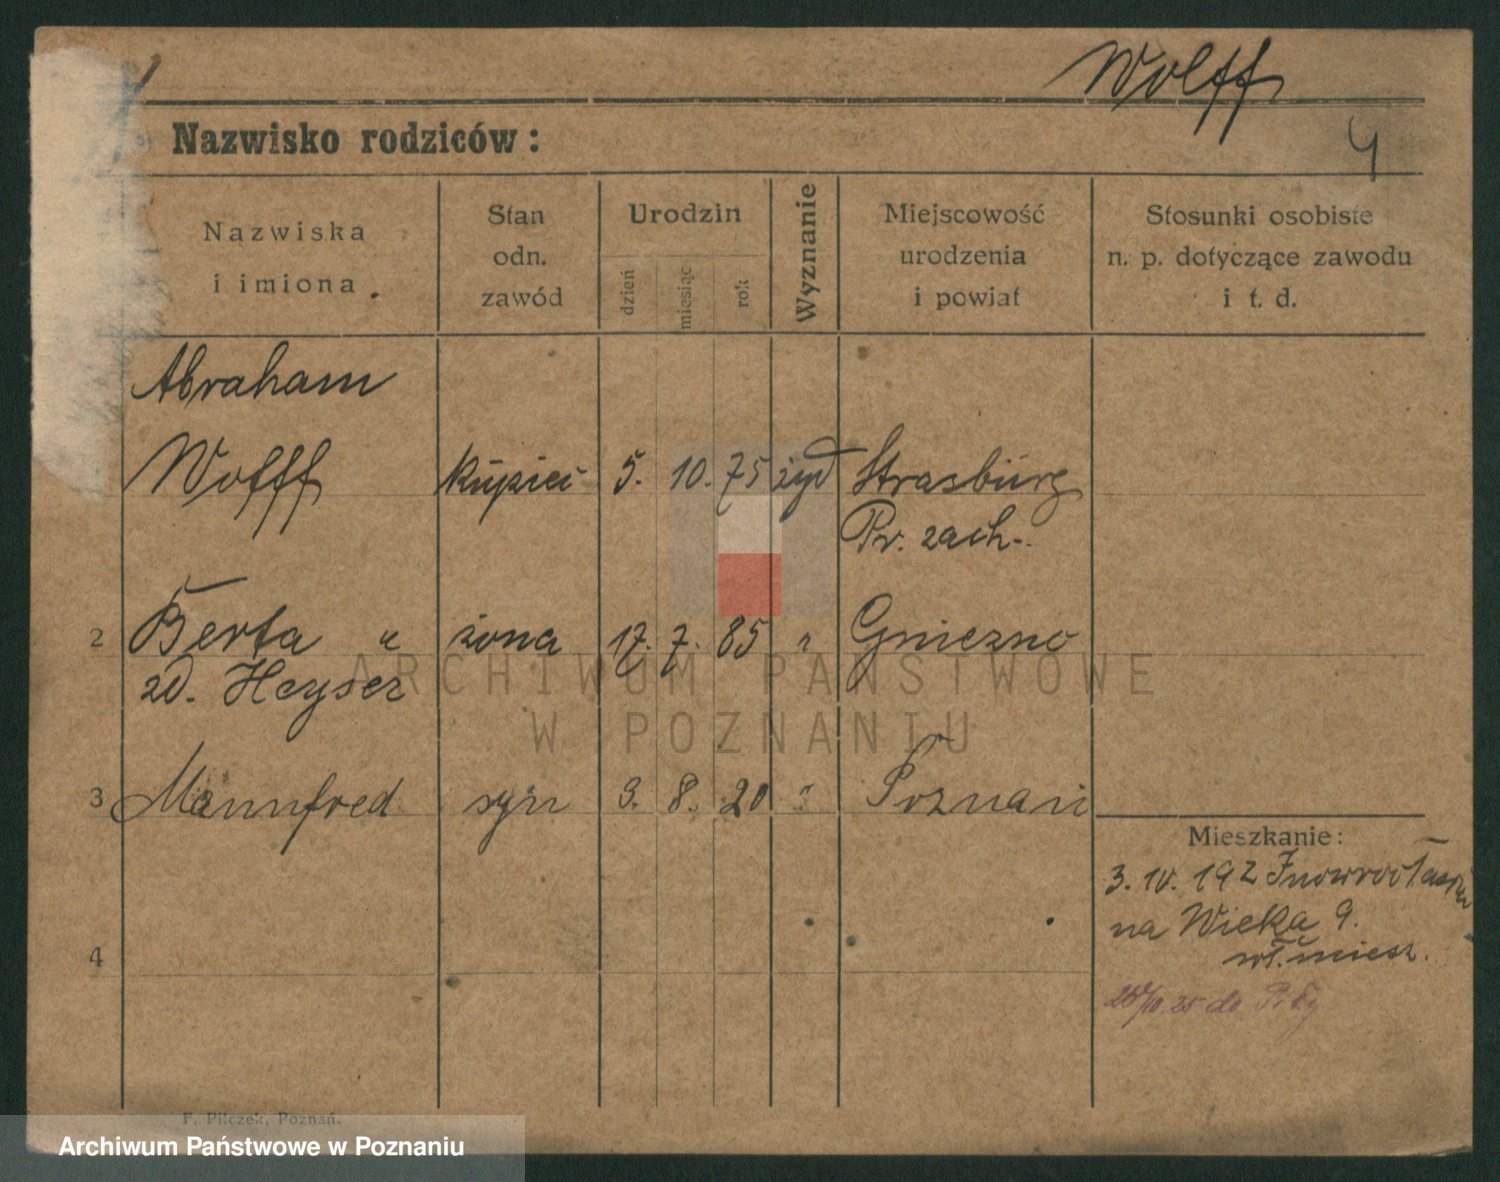 Wolff
Nazwisko rodziców:
4
Nazwiska
i imiona.
Stan
odn.
zawód
Urodzin
dzień
miesiąc
rok
Wyznanie
Miejscowość
urodzenia
i powiat
Stosunki osobiste
n. p. dotyczące zawodu
i t. d.
Abraham
Wolff kupiec 5. 10. 75 żyd Strasburg
Pr. zach.
2 Berta " żona 17. 7. 85 " Gniezno
zd. Heyser
3 Mannfred syn 9. 8. 20 " Poznań
Mieszkanie:
3. IV. 192
na 9.
wł. miesz.
4
25 do Piły
F. Pilczek, Poznań.
ARCHIWUM PAŃSTWOWE
W POZNANIU
Archiwum Państwowe w Poznaniu